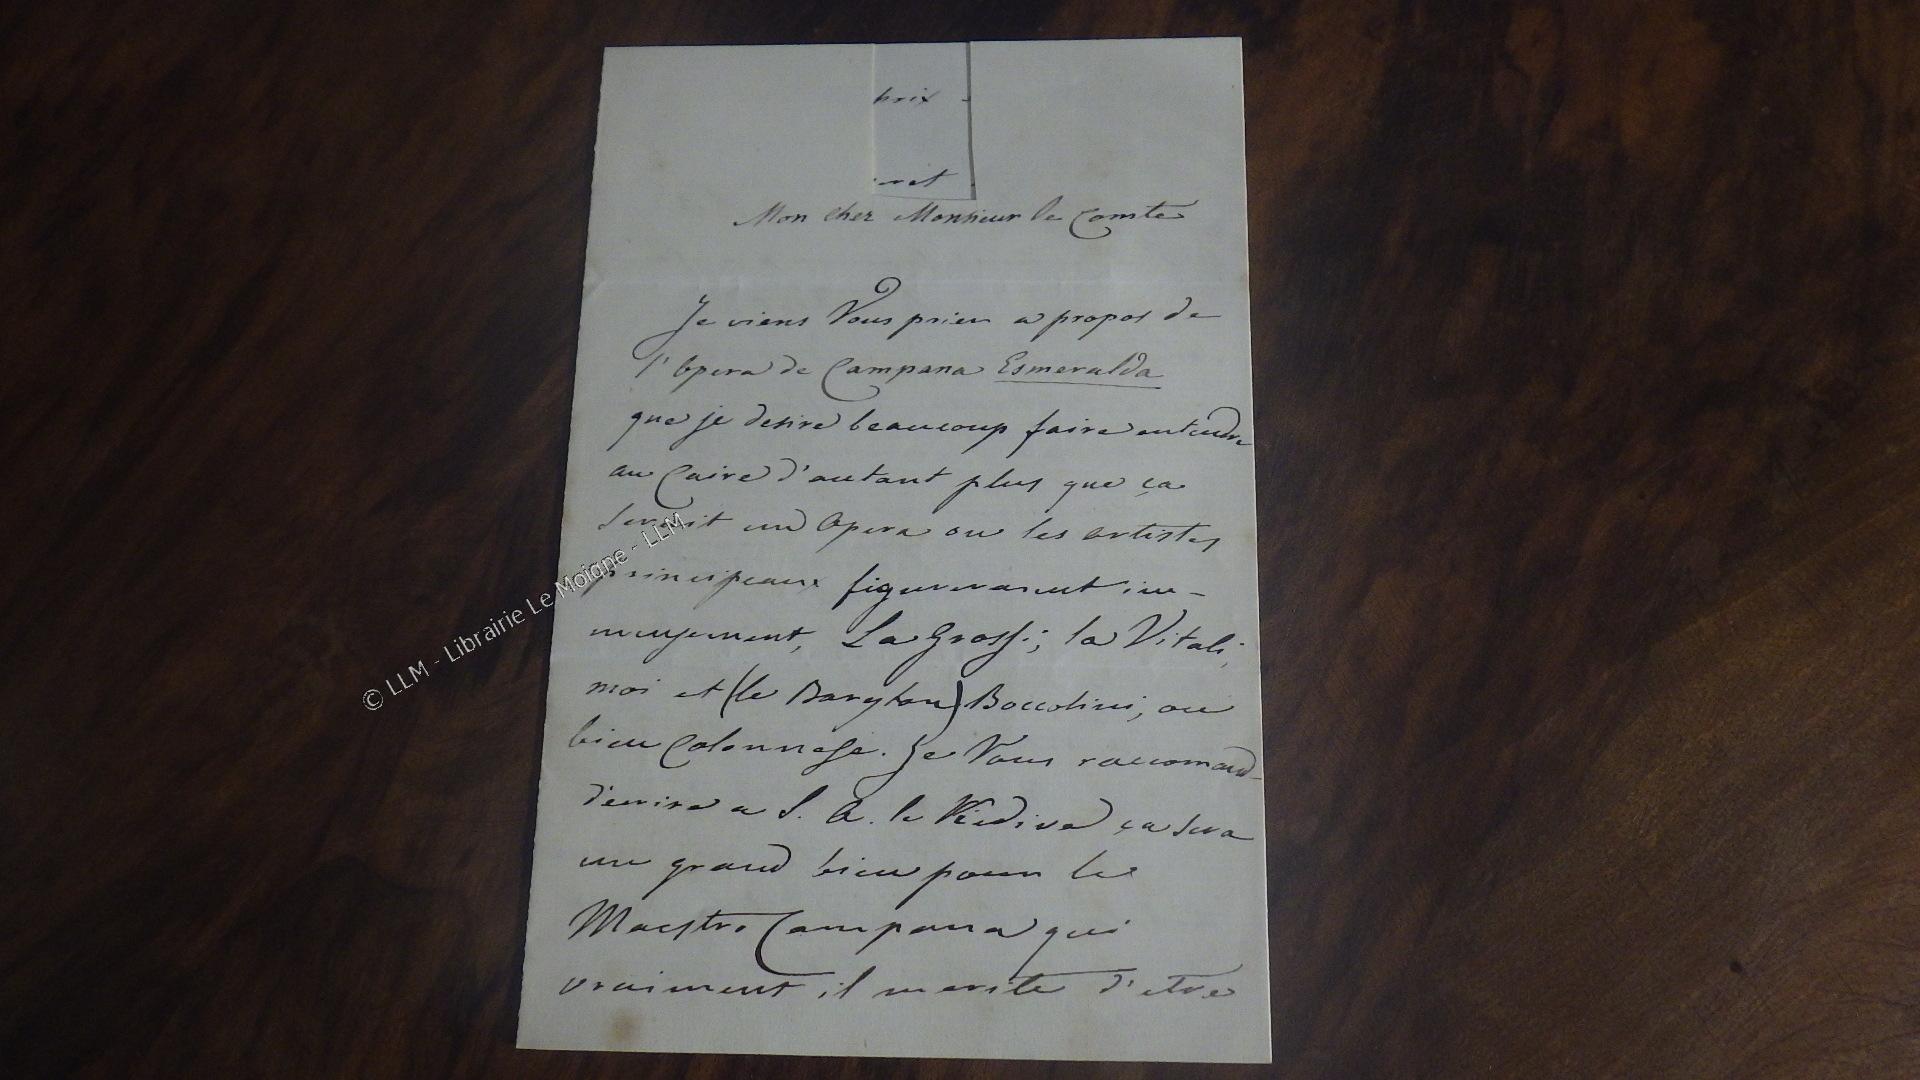 prix
Mon cher Monsieur le Comte
Je viens Vous prier a propos de
l'Opera de Campana Esmeralda
que je desire beaucoup faire entendre
au Caire d'autant plus que ça
serait un Opera ou les artistes
principeaux figurerasent im-
mensement, La Grossi; la Vitali,
moi et (le Baryton) Boccolini, ou
bien Colonnese. Je Vous raccomand-
d'ecrire a S. A. le Viedive ça sera
un grand bien pour le
Maestro Campana qui
vraiment il merite d'etre
© LLM - Librairie Le Moigne - LLM